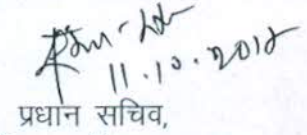 11.10.2018
प्रधान सचिव,